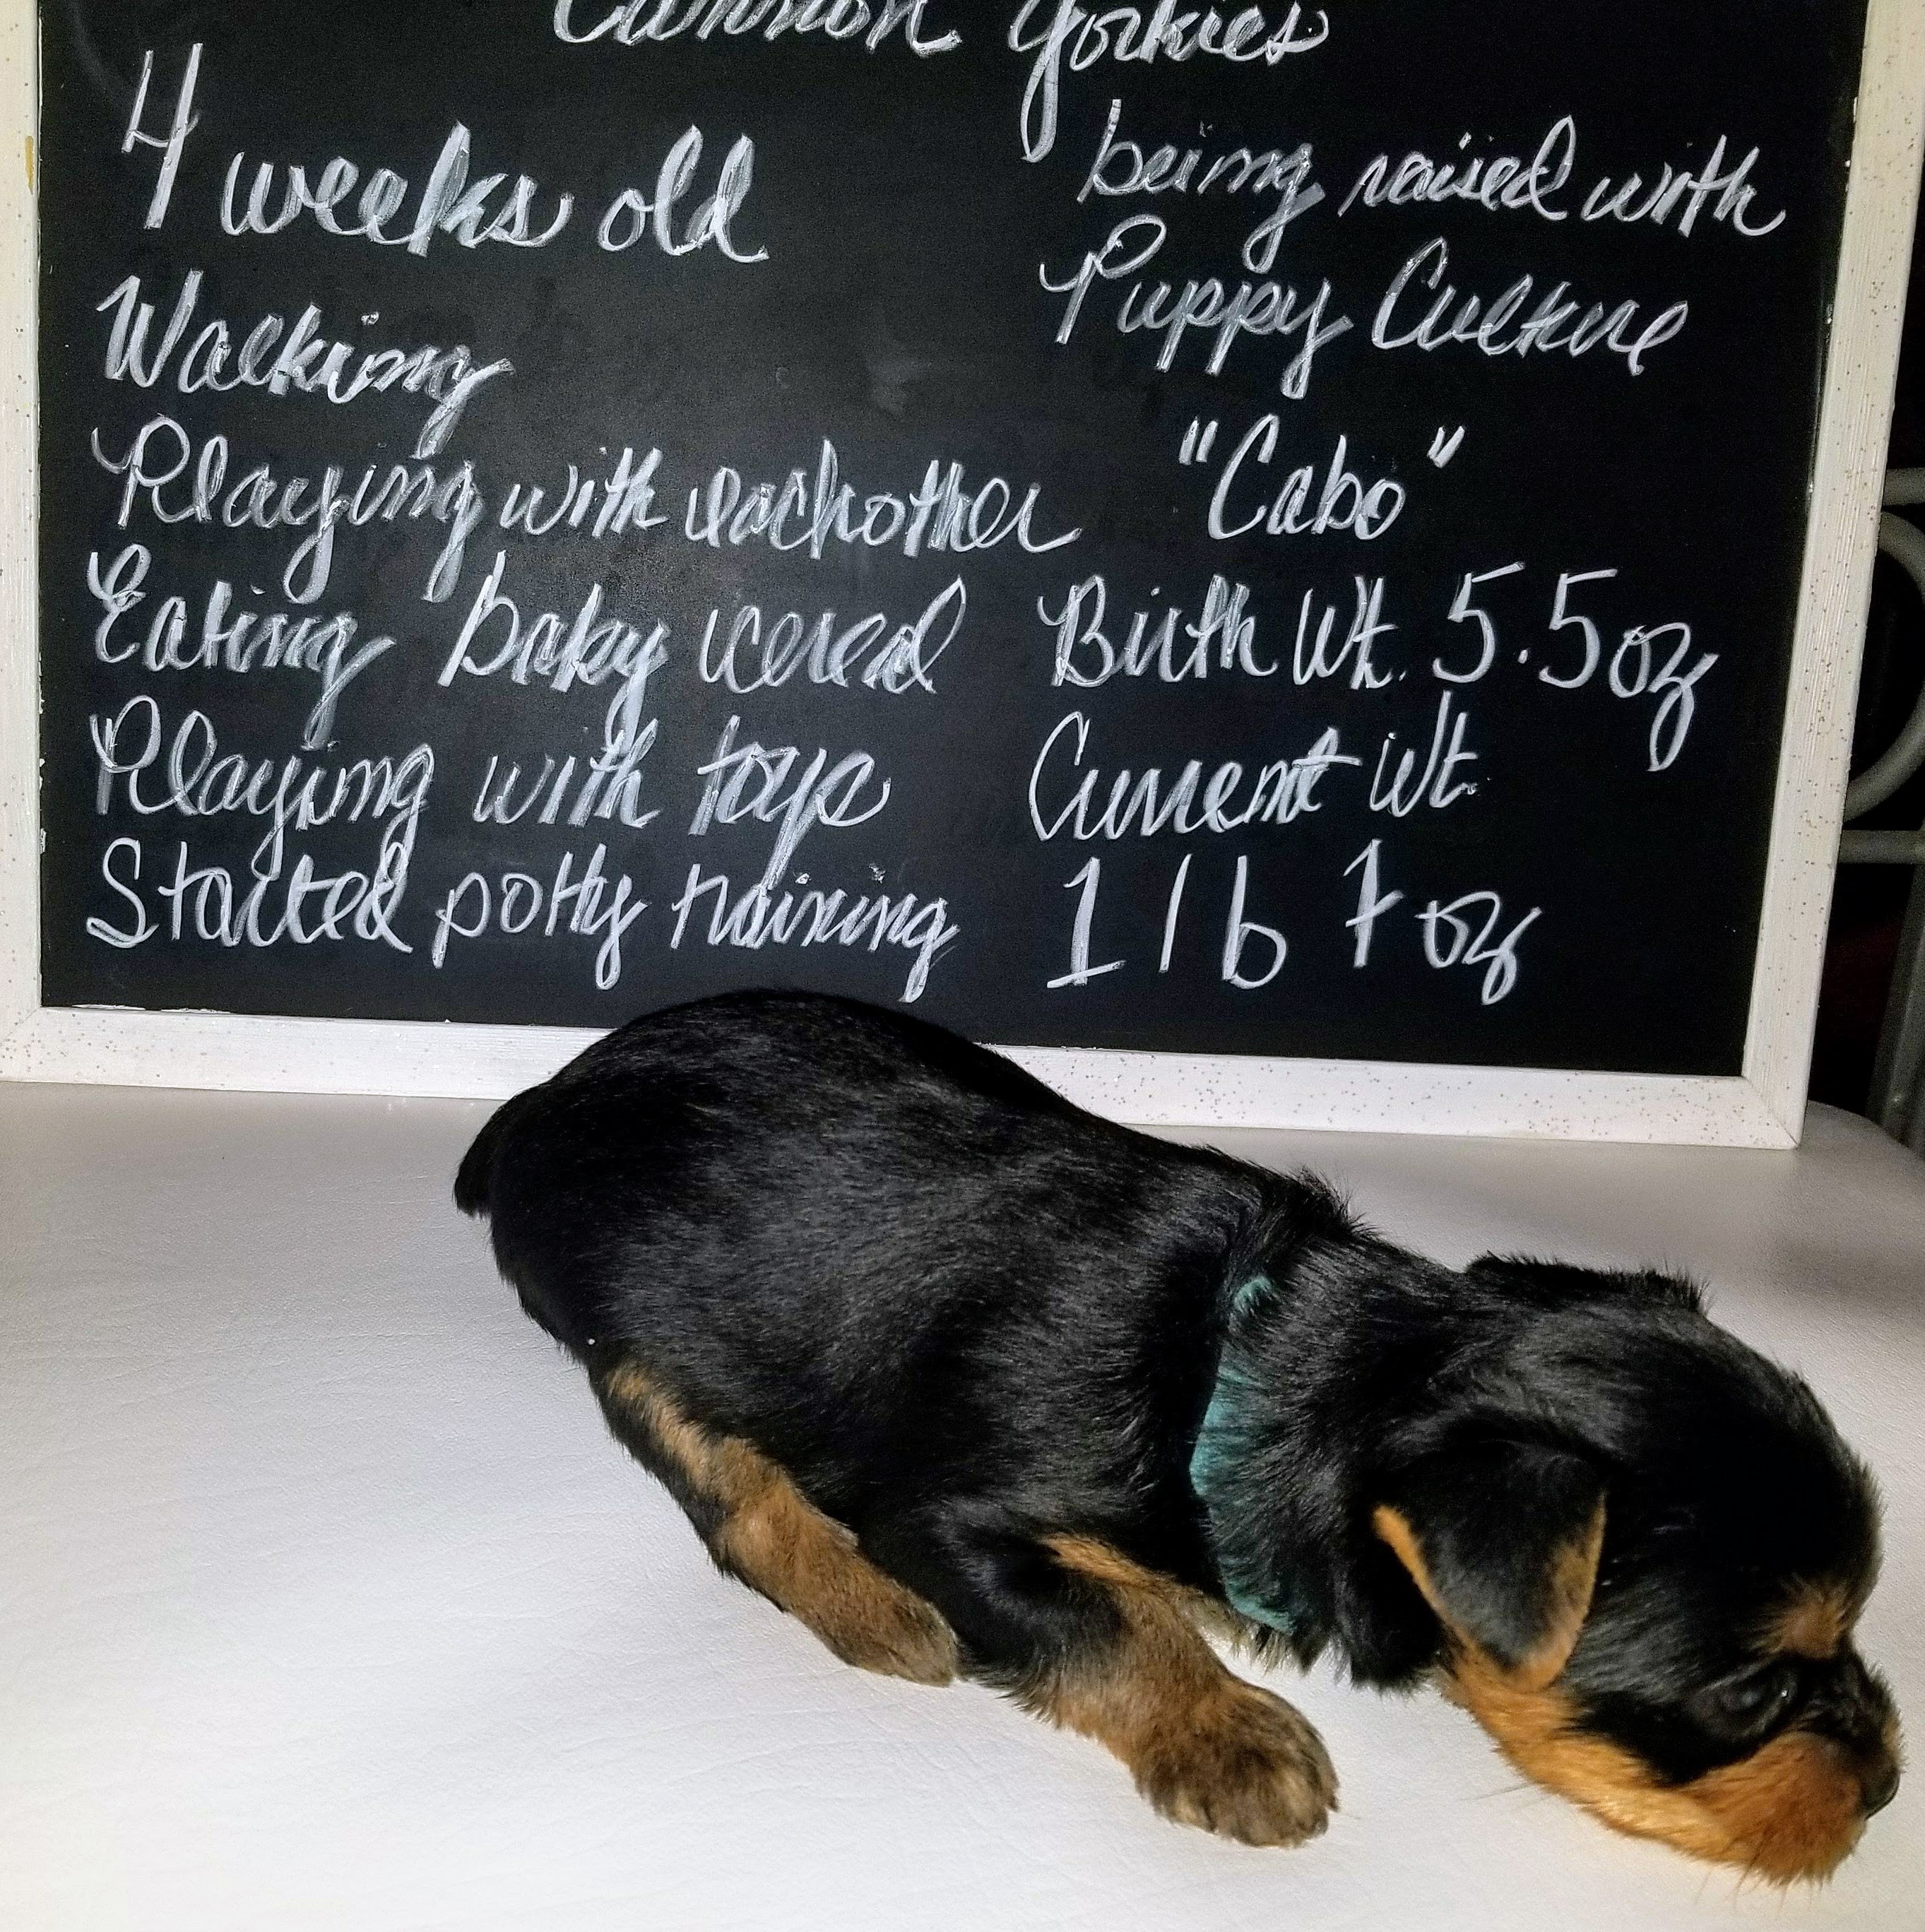 Cannon Yorkies
4 weeks old
Walking
Playing with eachother
Eating baby cereal
Playing with toys
Started potty training
being raised with
Puppy Culture
"Cabo"
Birth Wt. 5.5oz
Current Wt.
1 lb 7 oz